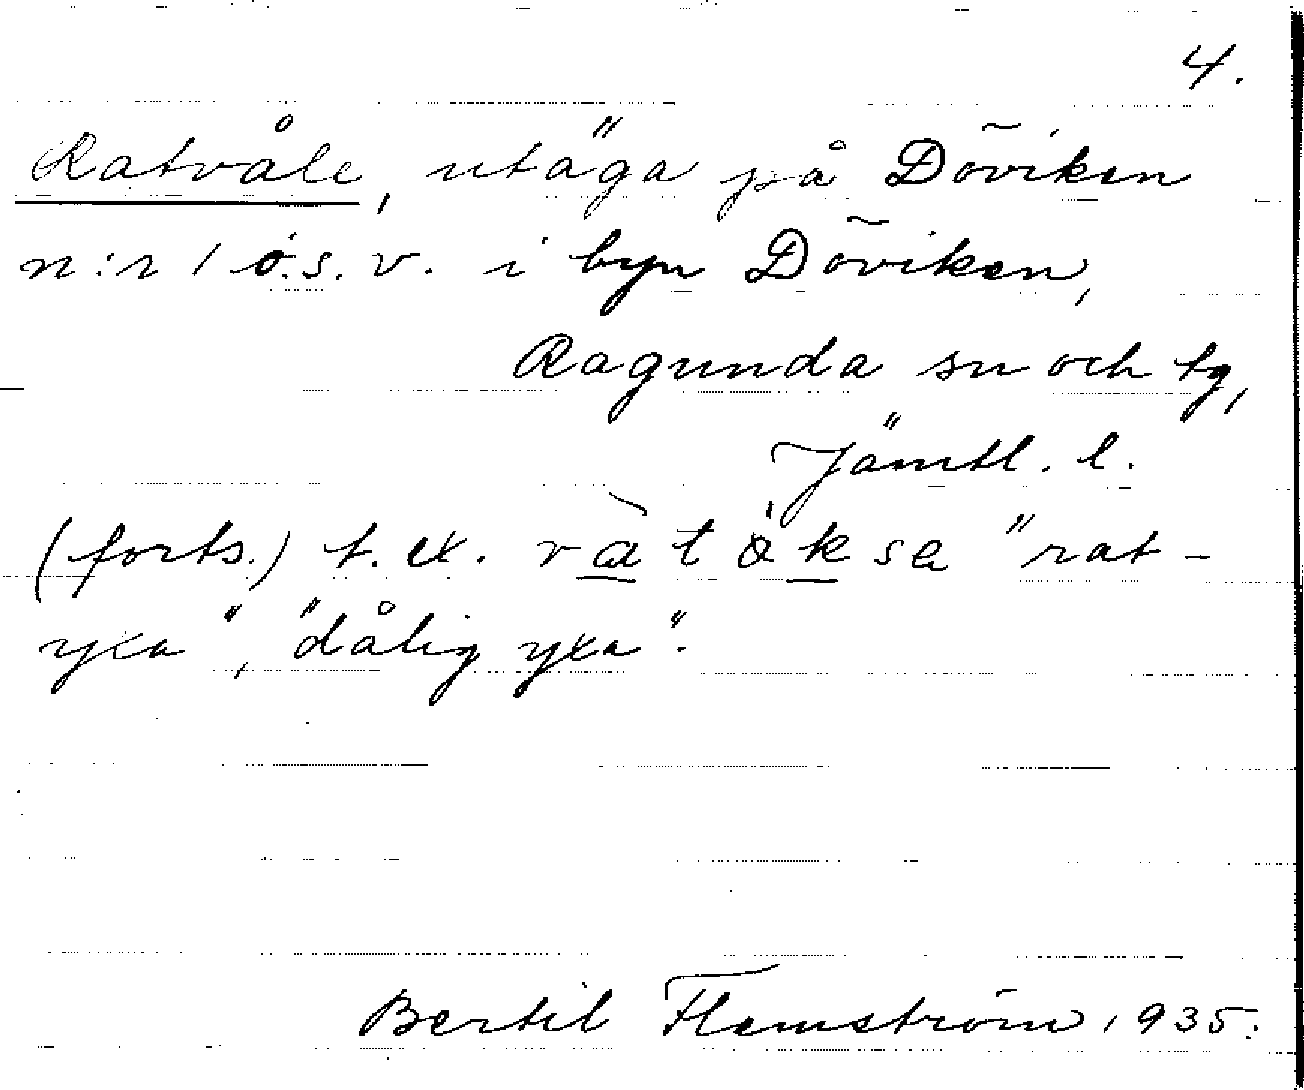 4.
Ratvåle, utäga på Döviken
n:r 1 o.s.v. i byn Döviken,
Ragunda sn och tg,
Jämtl. l.
(forts.) t. ex. ràtö̀ksa "rat-
yxa", "dålig yxa".
Bertil Flemström 1935.